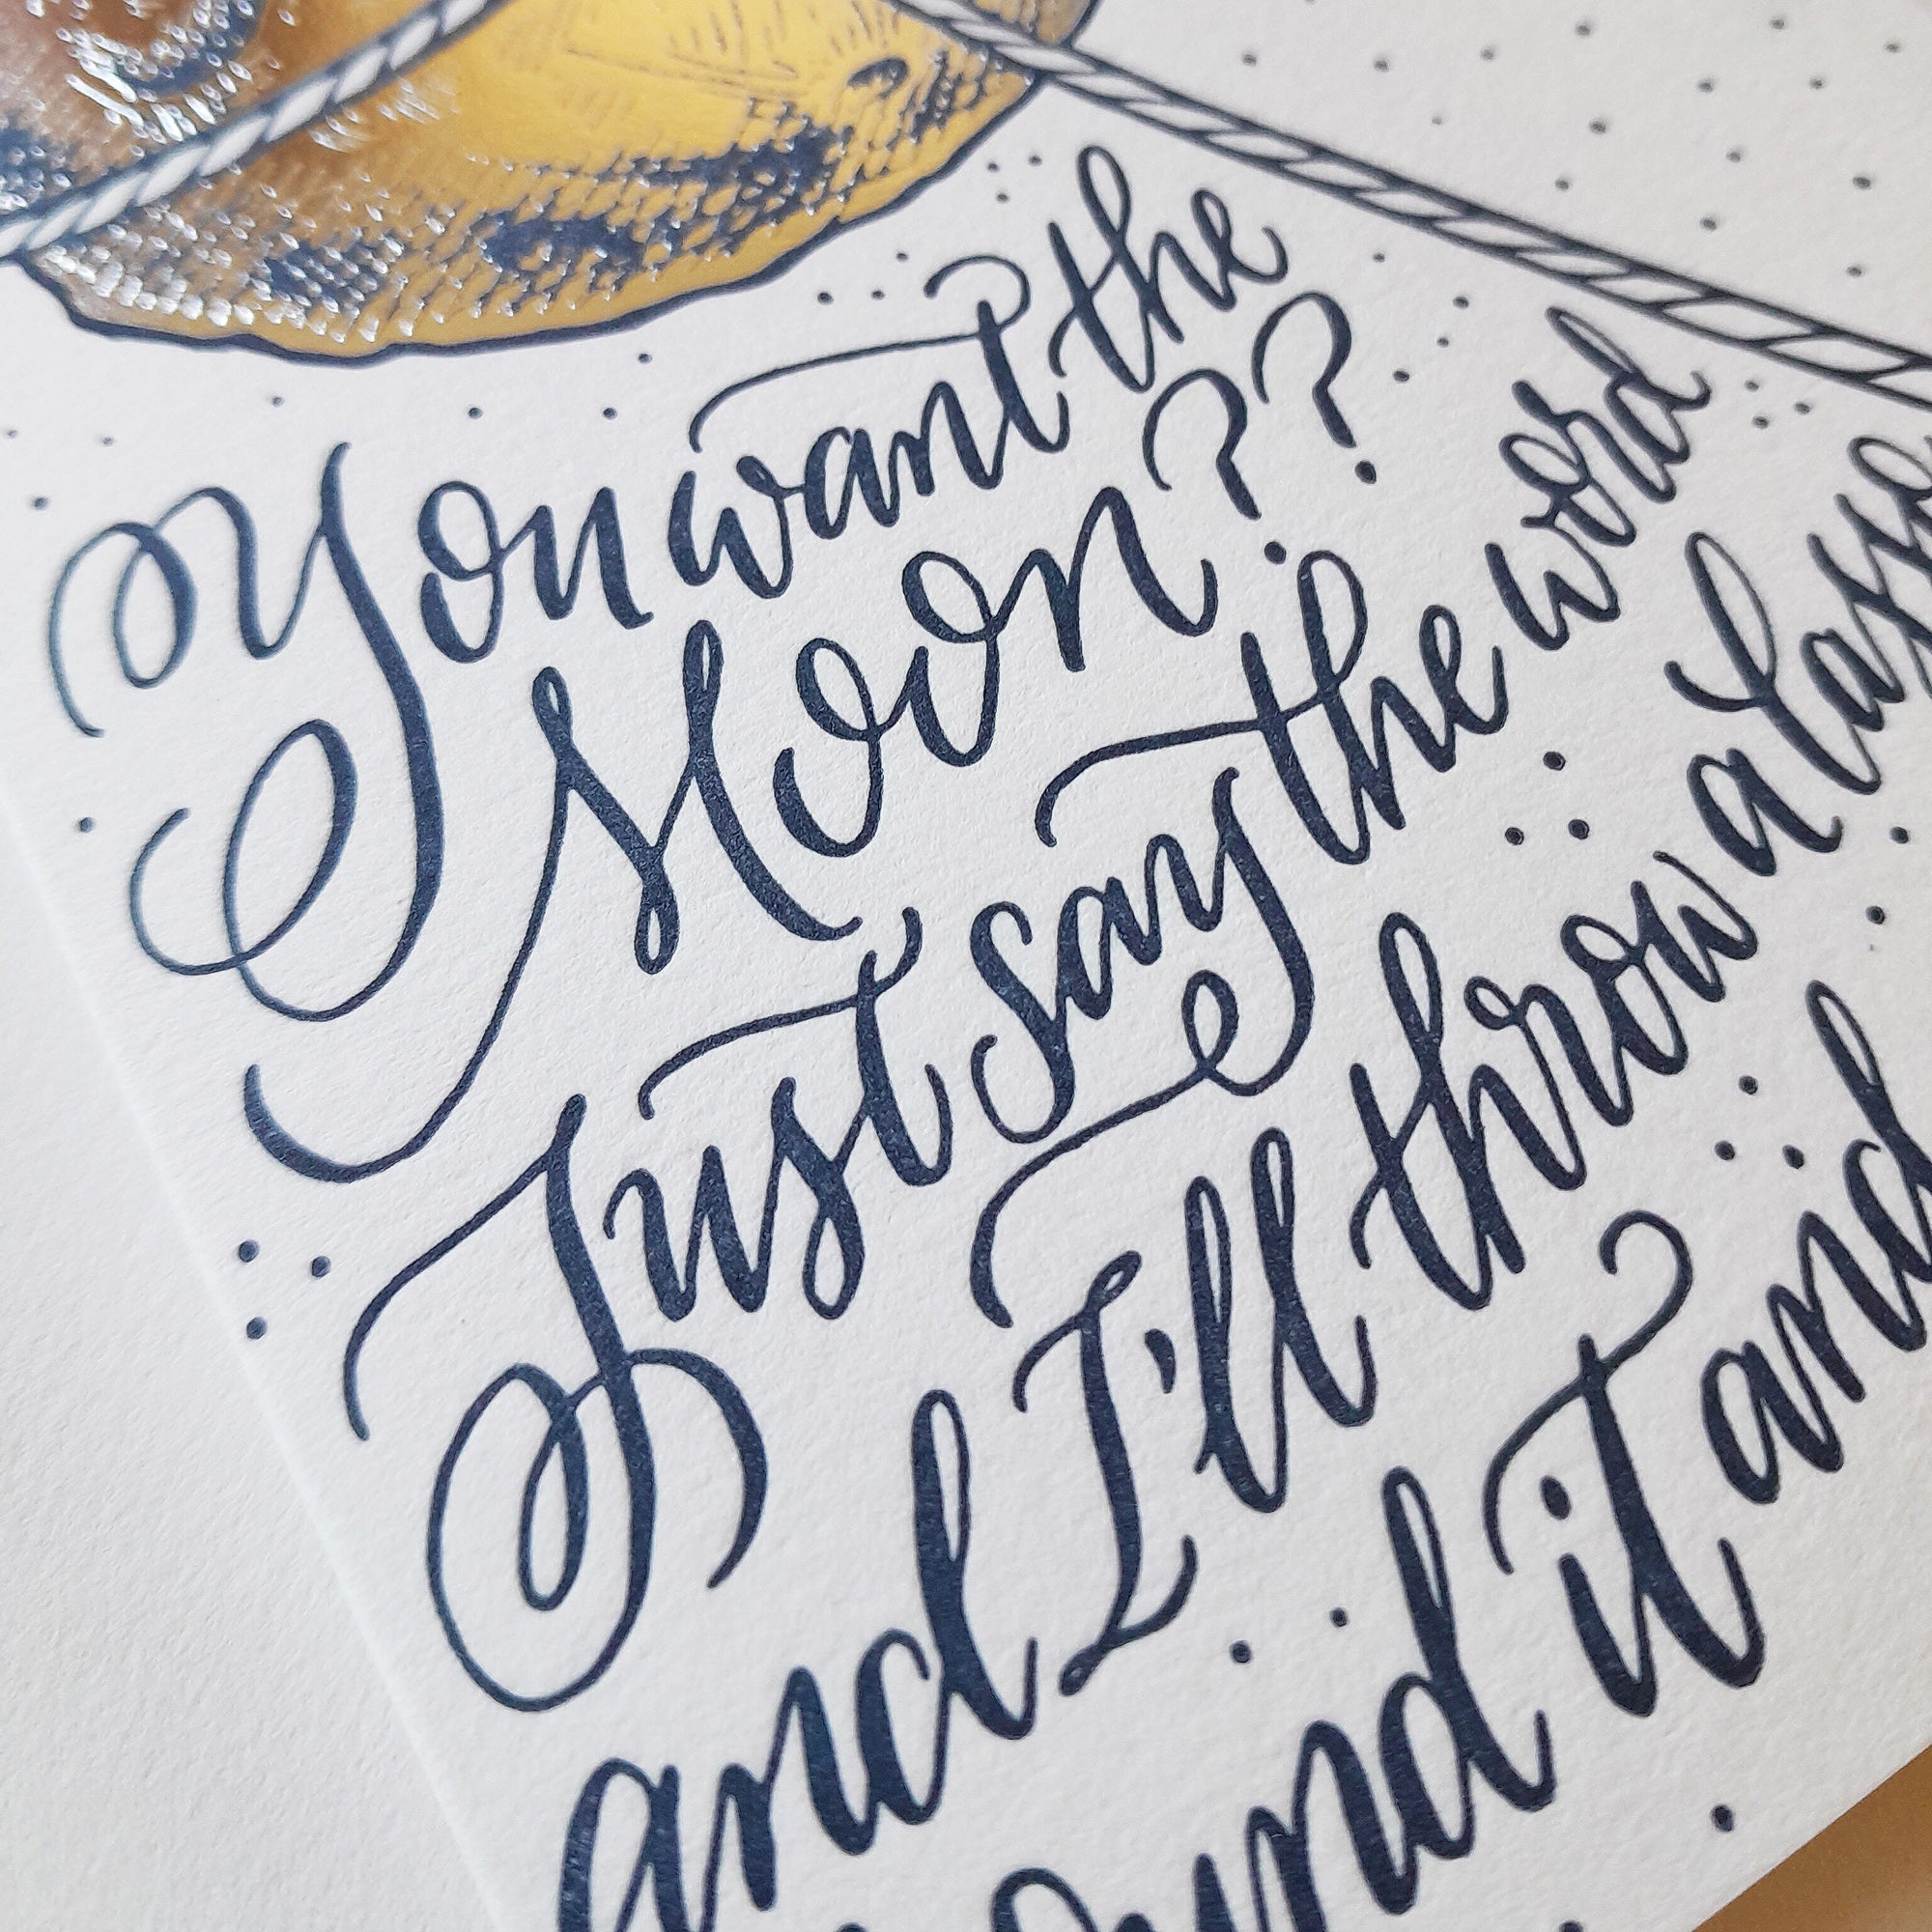 You want the
Moon??
Just say the word
and I'll throw a lasso
it and